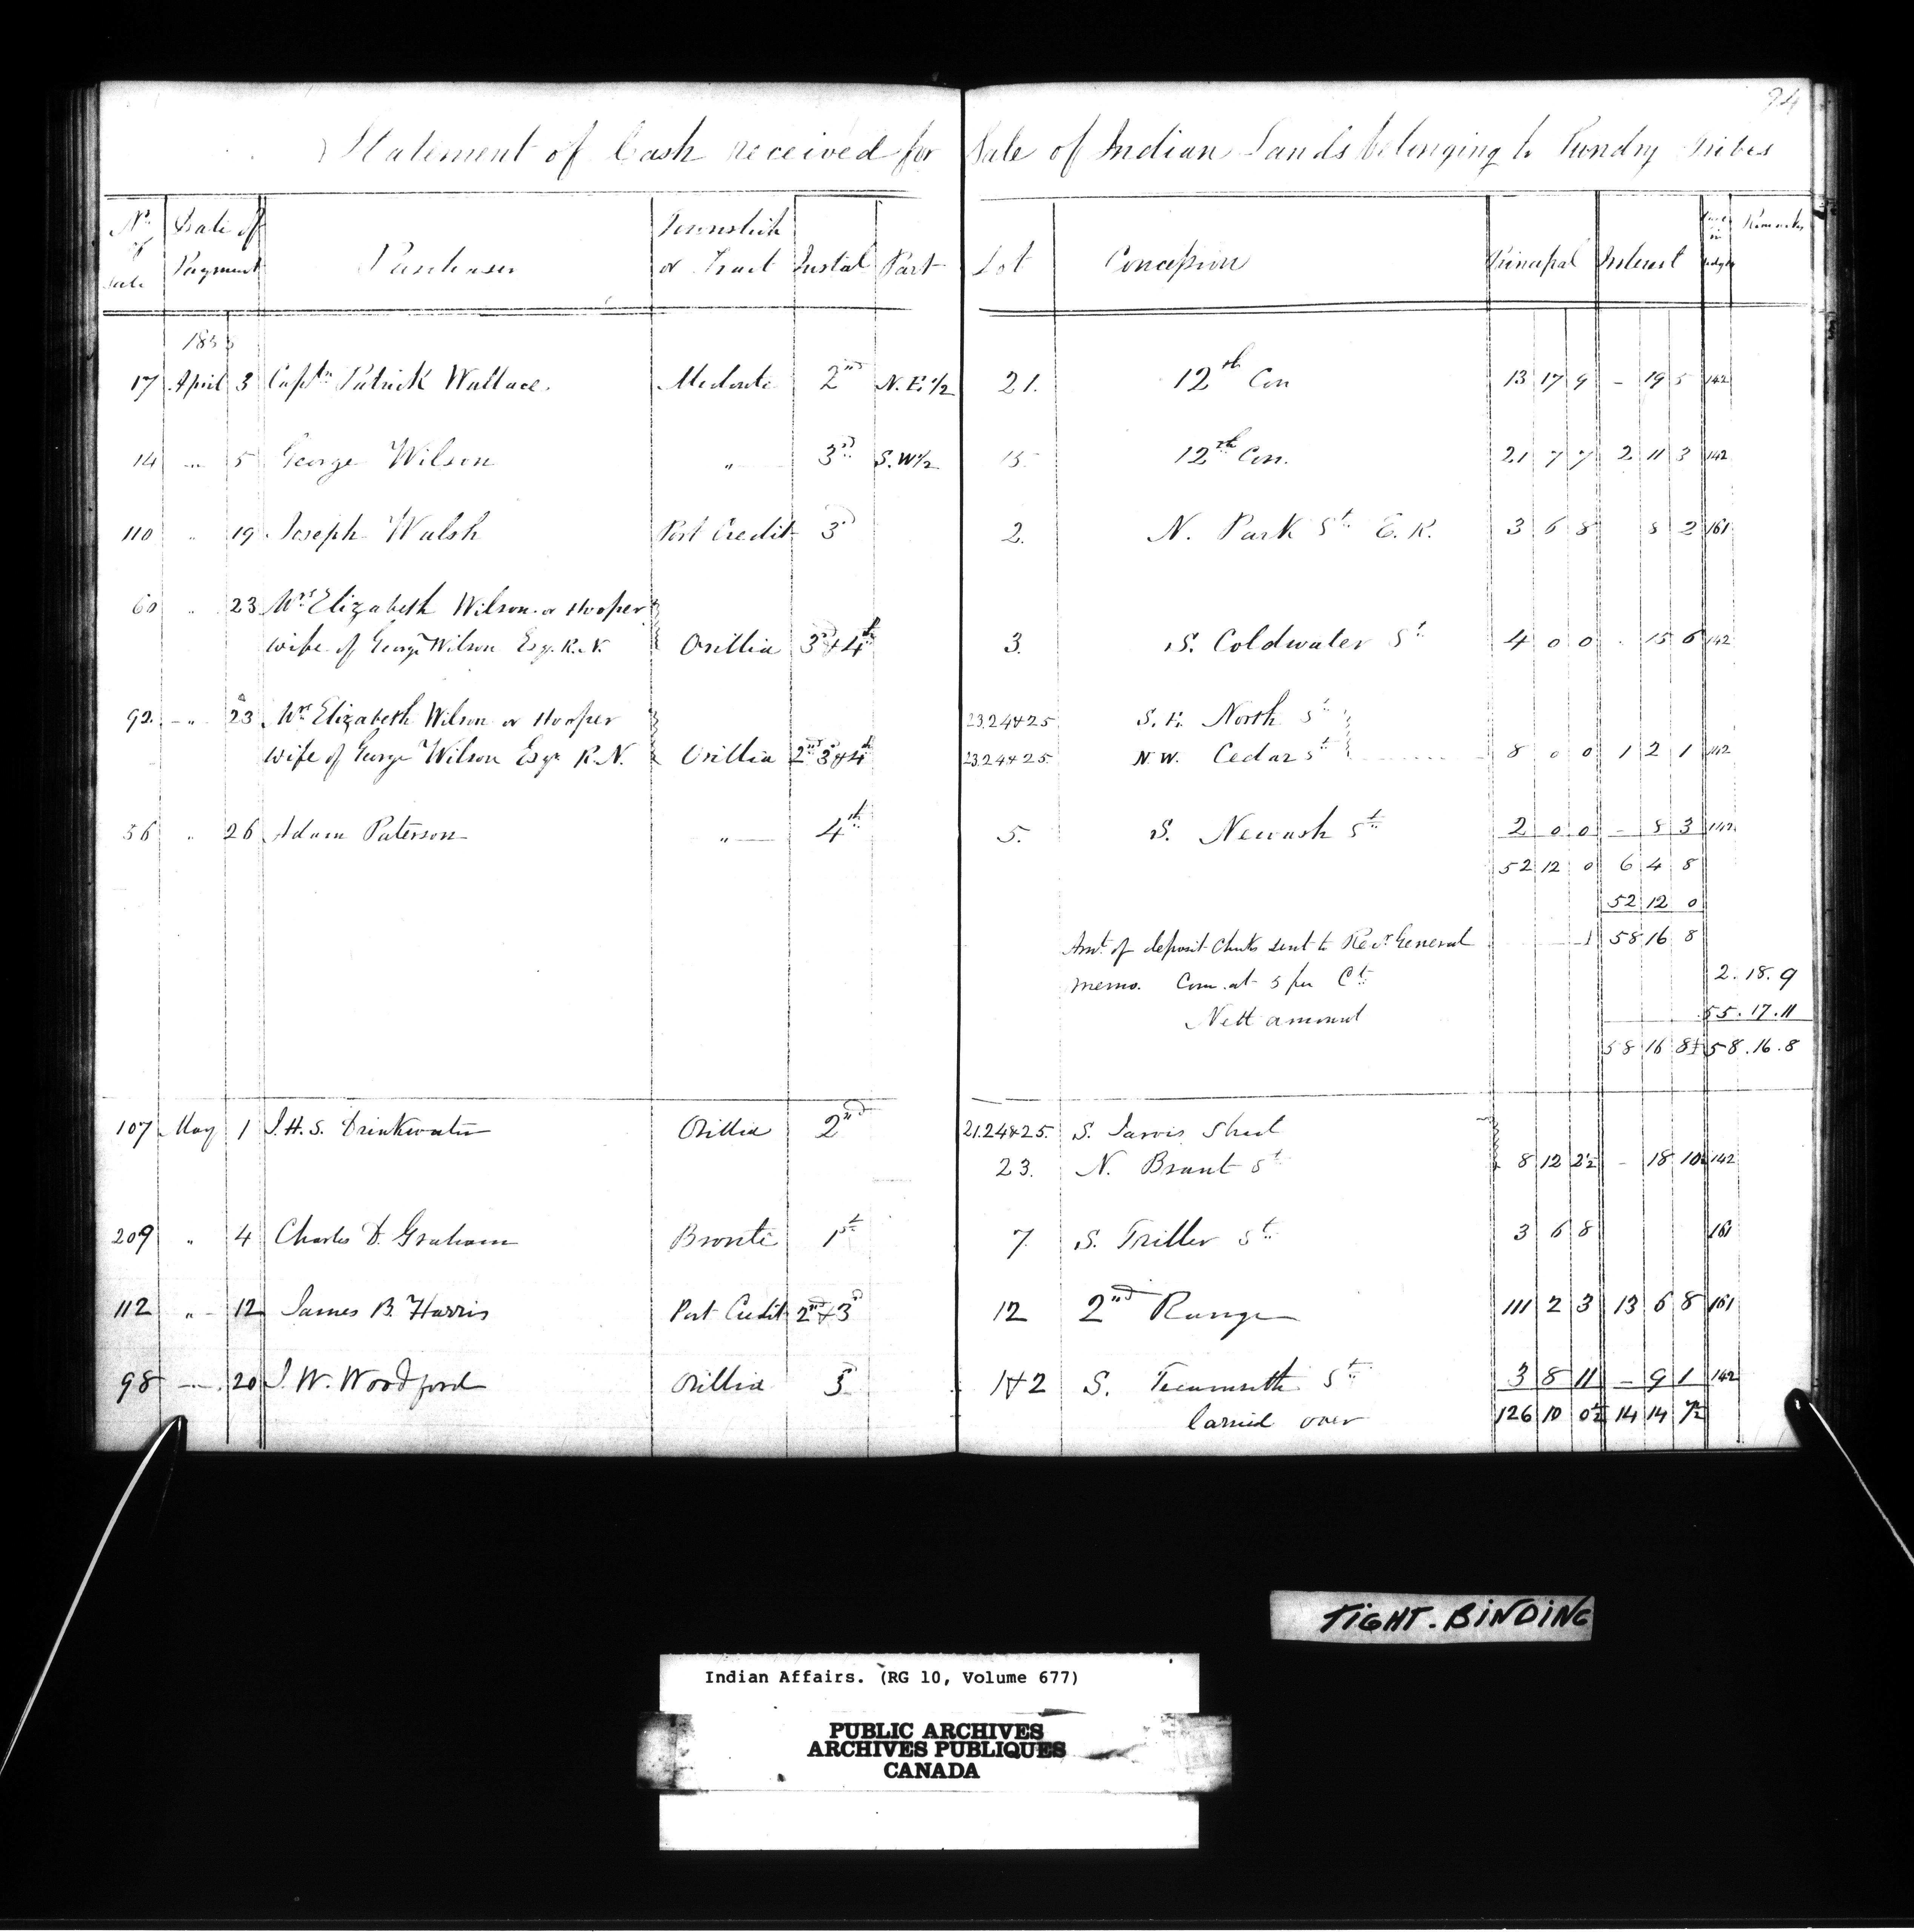 94
Statement of Cash received for Sale of Indian Lands belonging to Sundry Tribes
No. of Sale Date of Payment Purchaser Township or Tract Instal Part Lot Concession Principal Interest Remarks
17 April 3 Captn Patrick Wallace Medonte 2nd N.E. 1/2 21. 12th Con 13 17 9 - 19 5 142
14 " 5 George Wilson " 3rd S.W 1/2 15 12th Con. 21 7 7 2 11 3 142
110 " 19 Joseph Walsh Port Credit 3d 2. N. Park St. E.R. 3 6 8 8 2 161
60 " 23 Mrs Elizabeth Wilson or Hooper
wife of George Wilson Esq. R.N. Orillia 3d & 4th 3. S. Coldwater St. 4 0 0 - 15 6 142
92. " 23 Mrs Elizabeth Wilson or Hooper 23.24 & 25 S.E. North St
wife of George Wilson Esqr R.N. Orillia 2nd 3d & 4th 23.24 & 25. N.W. Cedar St 8 0 0 1 2 1 142
56 " 26 Adam Paterson " 4th 5. S. Newash St. 2 0 0 - 8 3 142
52 12 0 6 4 8
52 12 0
Amt. of deposit Checks sent to Recr General 58 16 8
Memo. Com. at 5 per Ct. 2.18.9
Nett amount 55.17.11
58 16 8 58.16.8
107 May 1 J.H.S. Drinkwater Orillia 2nd 21.24 & 25. S. Jarvis Street
23. N. Brant St 8 12 2½ - 18 10½ 142
209 " 4 Charles D. Graham Bronte 1st 7. S. Triller St. 3 6 8 161
112 " 12 James B. Harris Port Credit 2nd & 3d 12 2nd Range 111 2 3 13 6 8 161
98 " 20 J.W. Woodford Orillia 3d 1 & 2 S. Tecumseth St. 3 8 11 - 9 1 142
Carried over 126 10 0½ 14 14 7½
TIGHT. BINDING
Indian Affairs. (RG 10, Volume 677)
PUBLIC ARCHIVES
ARCHIVES PUBLIQUES
CANADA